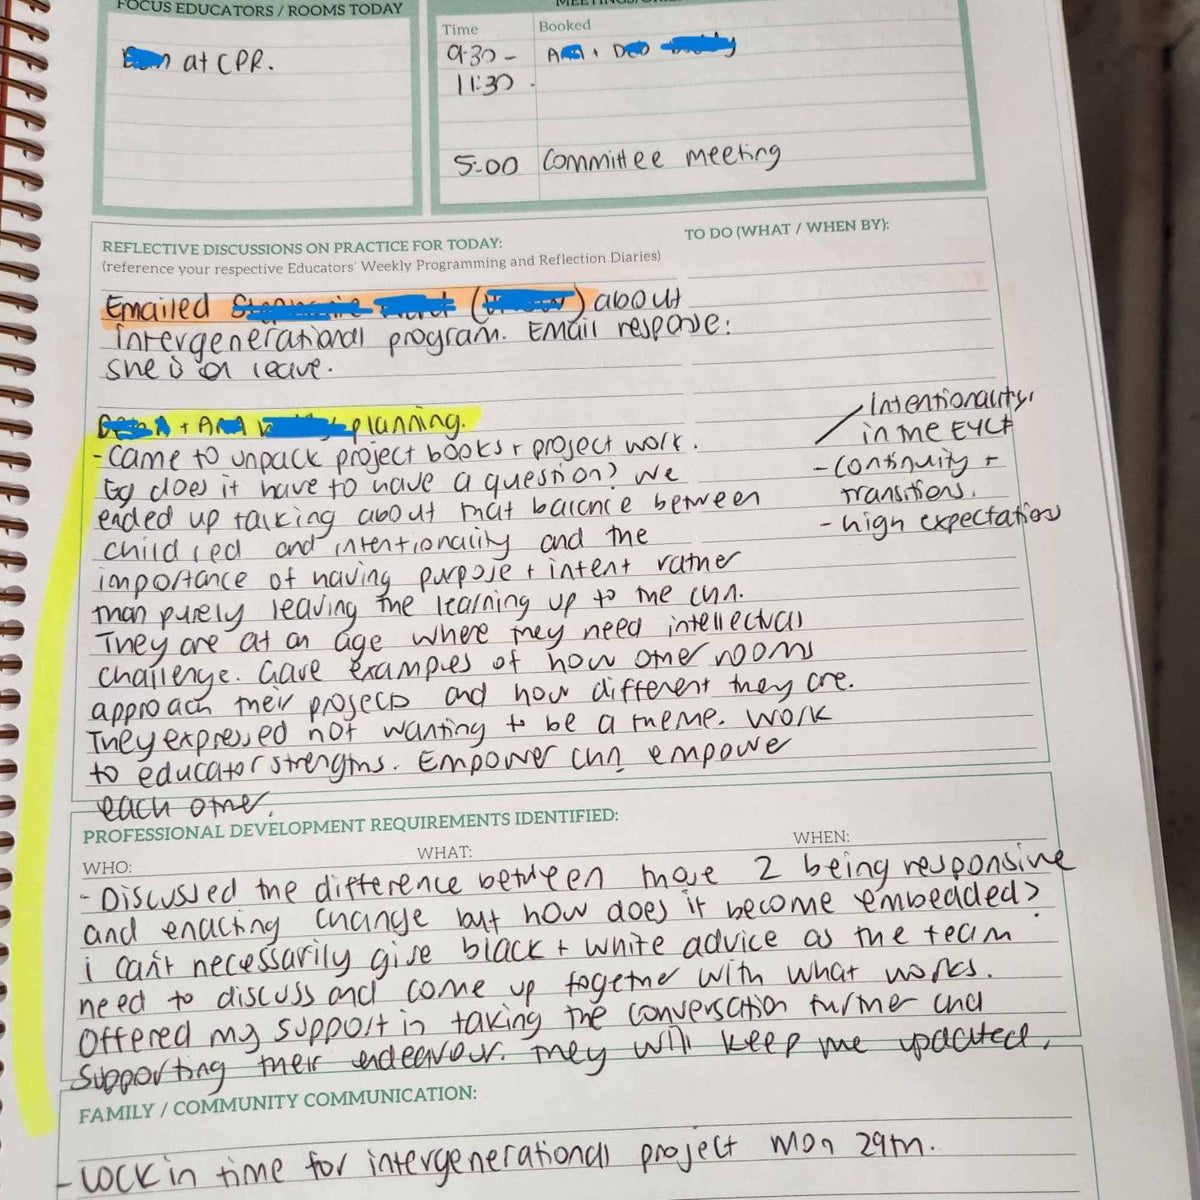 FOCUS EDUCATORS / ROOMS TODAY
at CPR.
Time Booked
9.30 -
11:30
5:00 Committee meeting
REFLECTIVE DISCUSSIONS ON PRACTICE FOR TODAY:
(reference your respective Educators' Weekly Programming and Reflection Diaries)
TO DO (WHAT / WHEN BY):
Emailed about
intergenerational program. Email response:
she is on leave.
planning.
- came to unpack project books + project work.
Eg does it have to have a question? We
ended up talking about that balance between
child led and intentionality and the
importance of having purpose + intent rather
than purely leaving the learning up to the chn.
They are at an age where they need intellectual
challenge. Gave examples of how other rooms
approach their projects and how different they are.
They expressed not wanting to be a theme. Work
to educator strengths. Empower chn empower
each other.
Intentionality,
in the EYLF
- continuity +
transitions.
- high expectations
PROFESSIONAL DEVELOPMENT REQUIREMENTS IDENTIFIED:
WHO: WHAT: WHEN:
- Discussed the difference between those 2 being responsive
and enacting change but how does it become embedded?
i can't necessarily give black + white advice as the team
need to discuss and come up together with what works.
Offered my support in taking the conversation further and
supporting their endeavour. They will keep me updated.
FAMILY / COMMUNITY COMMUNICATION:
- Lock in time for intergenerational project Mon 29th.